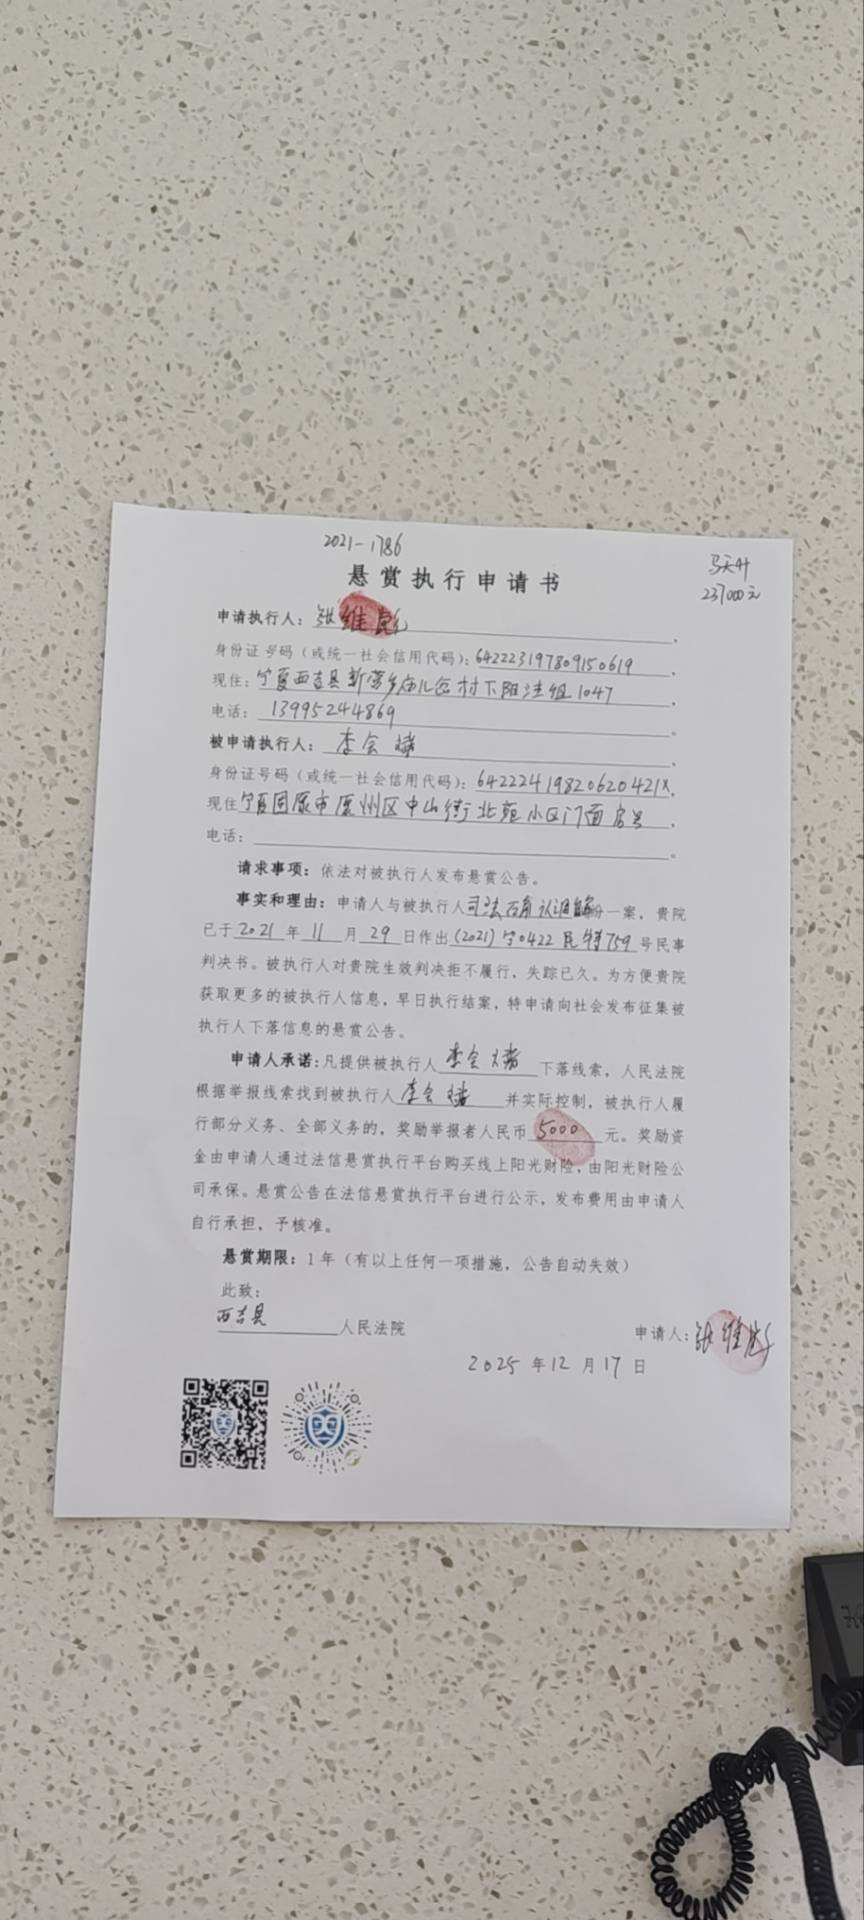 2021-1786
237000元
悬赏执行申请书
申请执行人：张维彪。
身份证号码（或统一社会信用代码）：642223197809150619。
现住：宁夏西吉县新营乡庙儿岔村下阳洼组1047。
电话：13995244869。
被申请执行人：李会。
身份证号码（或统一社会信用代码）：64222419820620421X。
现住宁夏固原市原州区中山街北苑小区门面房。
电话：。
请求事项：依法对被执行人发布悬赏公告。
事实和理由：申请人与被执行人司法确认调解一案，贵院
已于2021年11月29日作出(2021)宁0422民特759号民事
判决书。被执行人对贵院生效判决拒不履行，失踪已久。为方便贵院
获取更多的被执行人信息，早日执行结案，特申请向社会发布征集被
执行人下落信息的悬赏公告。
申请人承诺：凡提供被执行人李会下落线索，人民法院
根据举报线索找到被执行人李会并实际控制，被执行人履
行部分义务、全部义务的，奖励举报者人民币5000元。奖励资
金由申请人通过法信悬赏执行平台购买线上阳光财险，由阳光财险公
司承保。悬赏公告在法信悬赏执行平台进行公示，发布费用由申请人
自行承担，予核准。
悬赏期限：1年（有以上任何一项措施，公告自动失效）
此致：
西吉县人民法院
申请人：张维彪
2025年12月17日